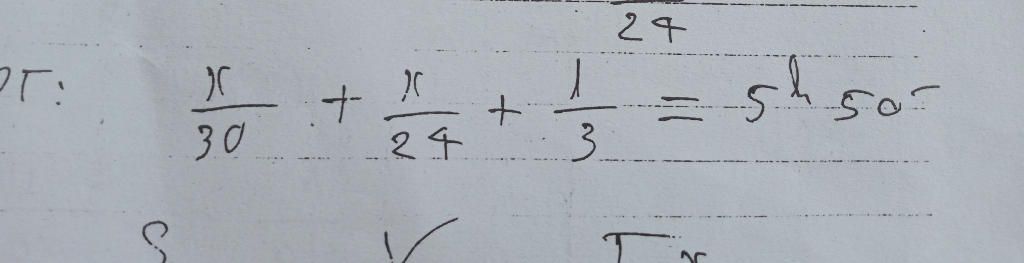 24
PT: x/30 + x/24 + 1/3 = 5h 50-
S V T